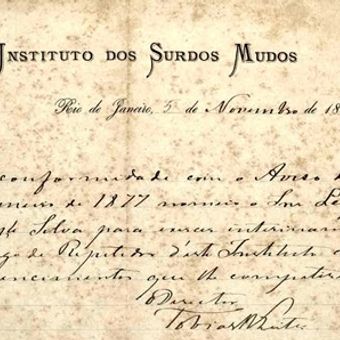 INSTITUTO DOS SURDOS MUDOS
Rio de Janeiro, 5 de Novembro de 18
conformidade com o Aviso d
aneiro de 1877 nomeio o Snr
Silva para exercer interinam
go de Repetidor d'este Instituto
encimentos que lh competire
O Director
Tobias Leite